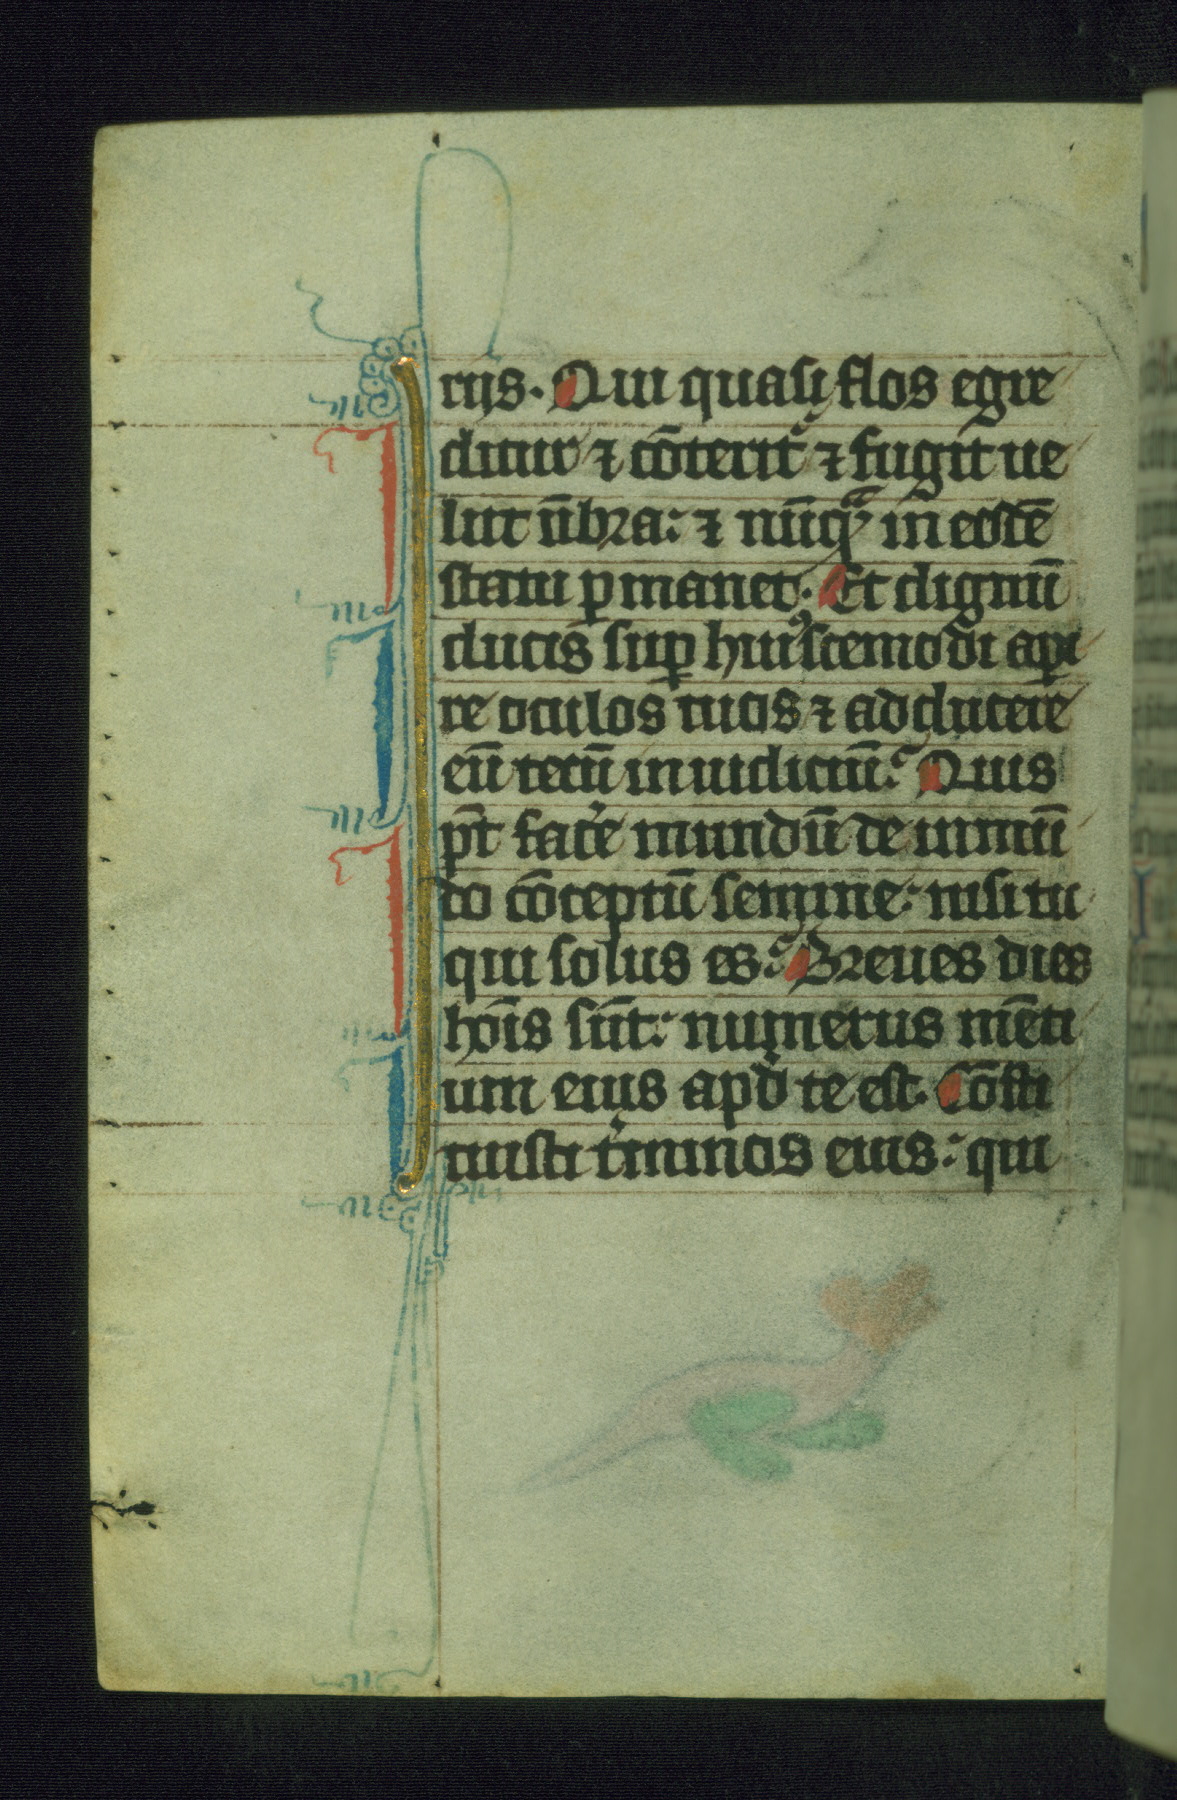 rijs. Qui quasi flos egre
ditur ⁊ cōterit᷑ ⁊ fugit ue
lut ūbra: ⁊ nūqᷓ in eodē
statu ꝑmanet. Et dignū
ducis suꝑ huiꝰscemodi aꝑi
re oculos tuos ⁊ adducere
eū tecū in iudiciū. Quis
pt̄ face᷑ mundū de inmū
do cōceptū semine: nisi tu
qui solus es. Breues dies
hoīs sūt: numerus mēti
um eius apd̄ te est. Cōsti
tuisti t᷑minos eius: qui